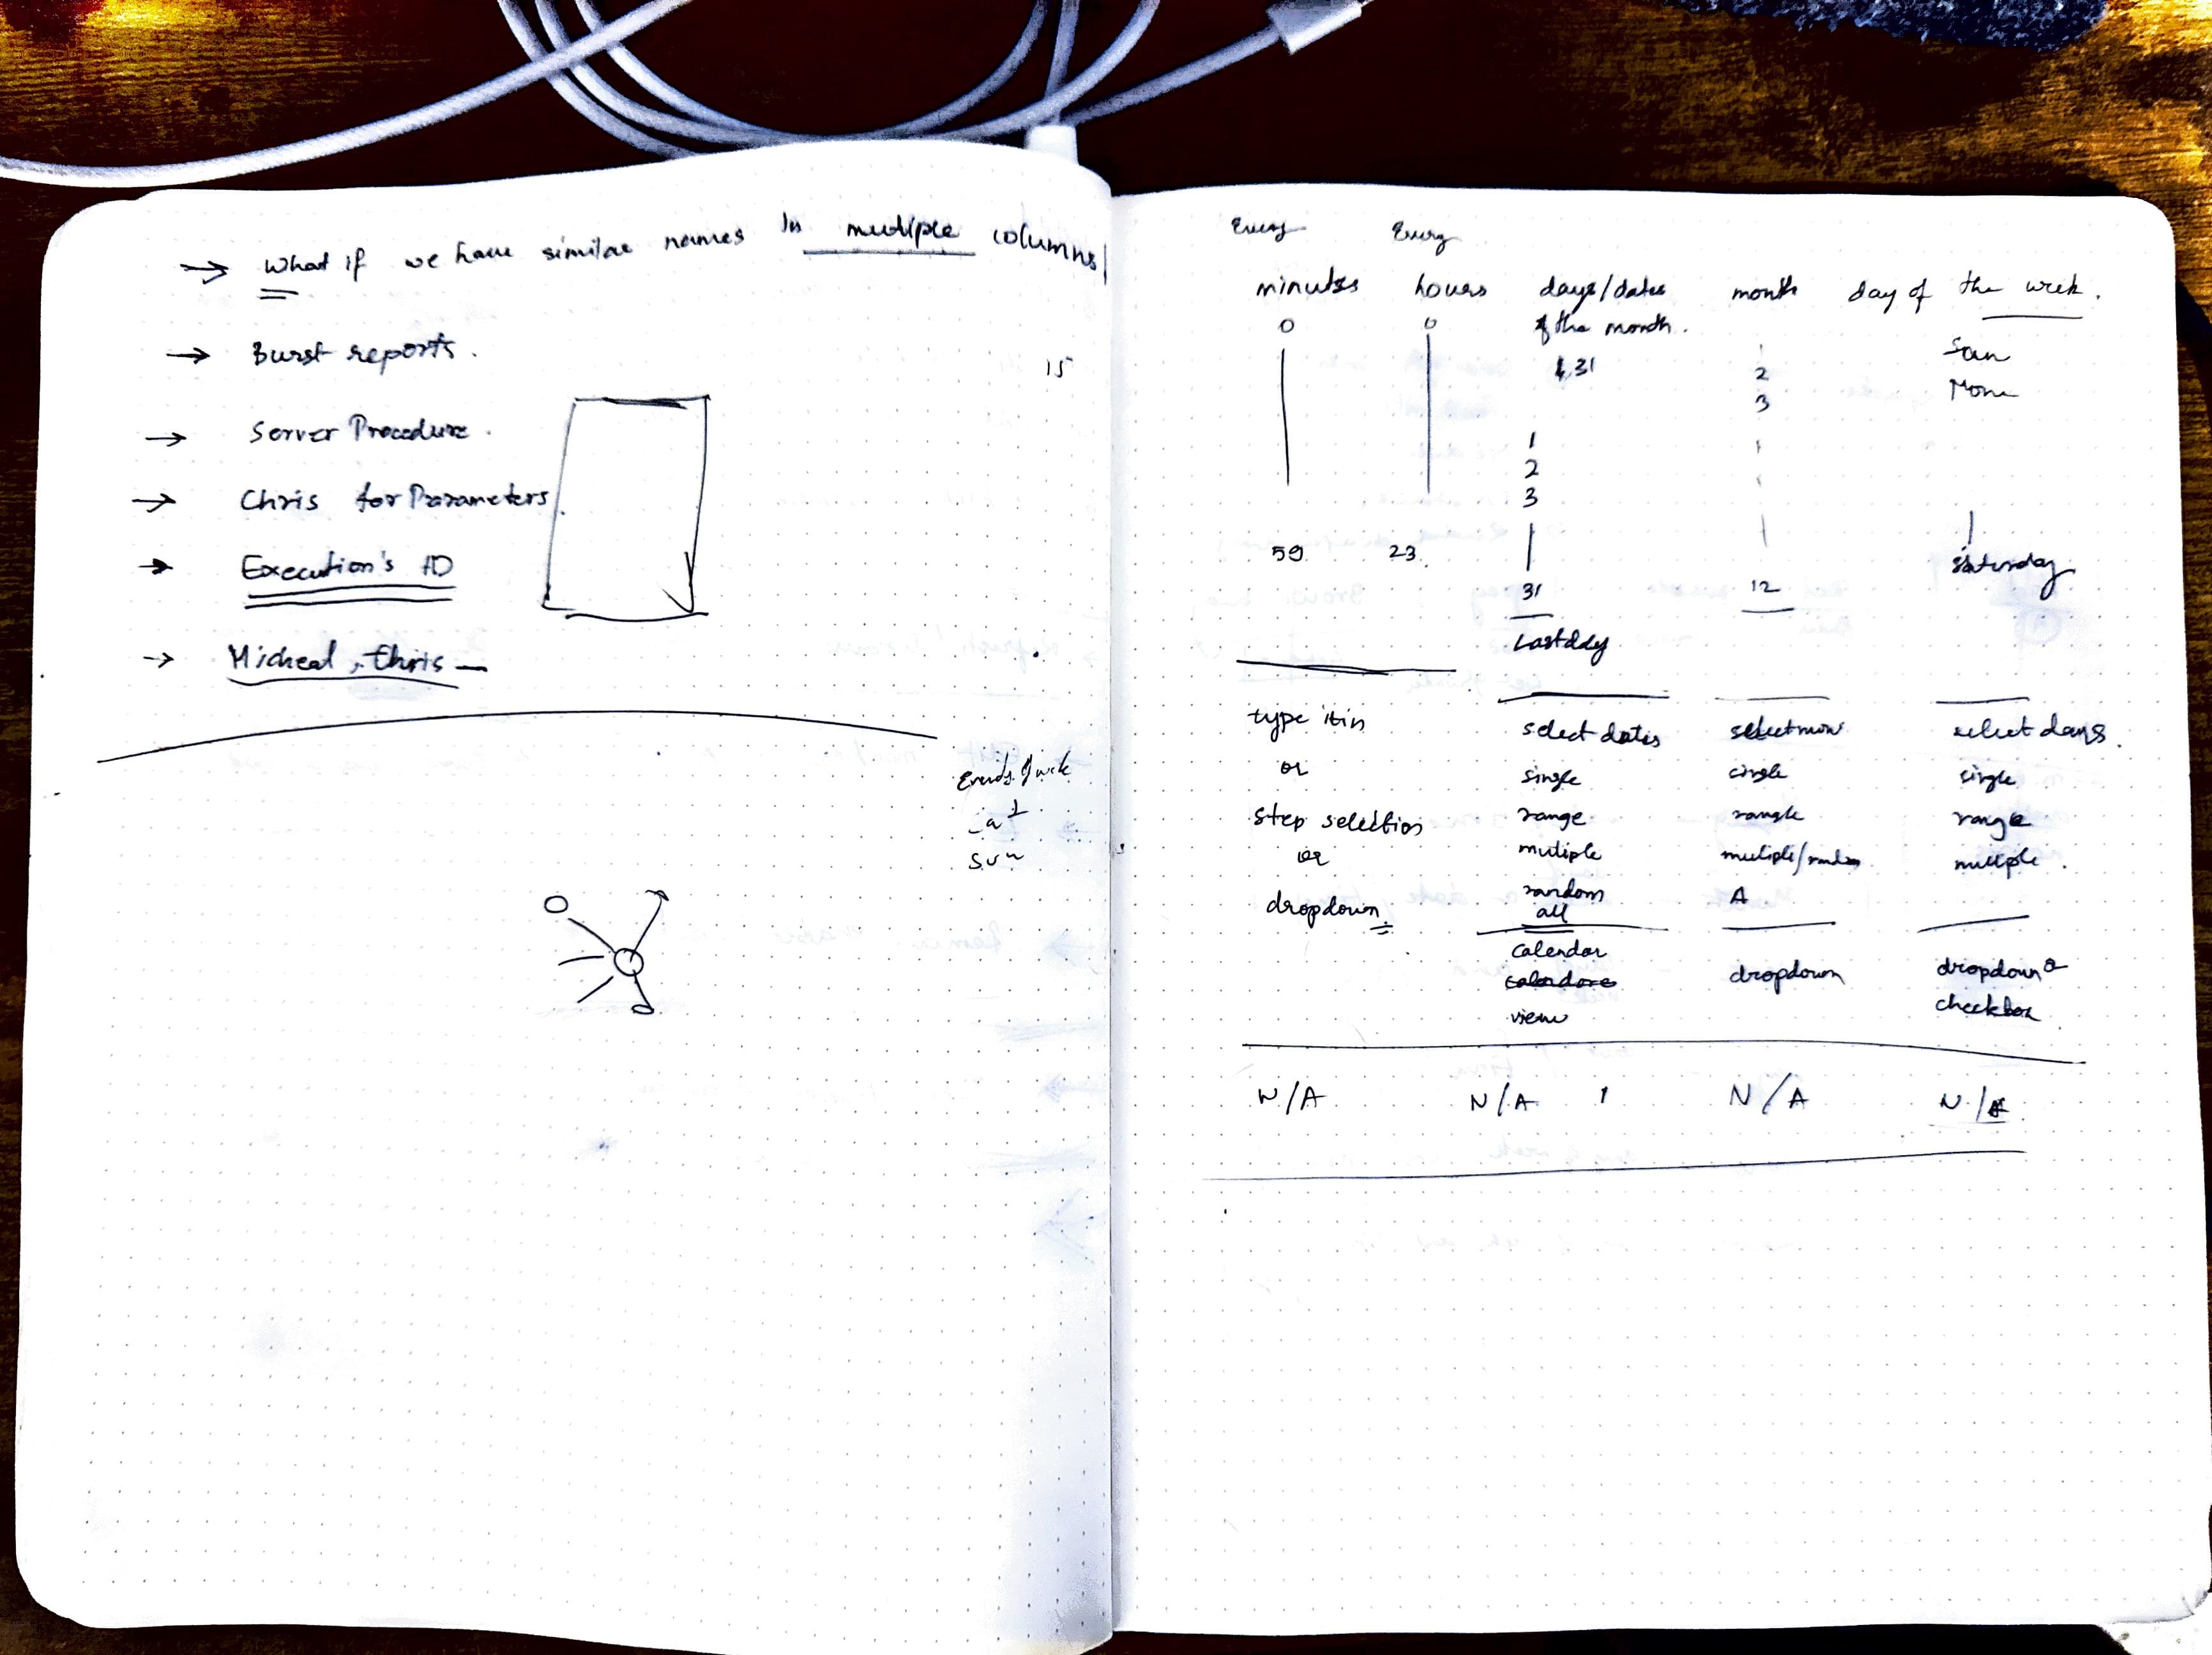 → What if we have similar names In mutiple columns
→ Burst reports.
15
→ Server Procedure.
→ Chris for Parameters.
→ Execution's ID
→ Micheal, Chris —
sun
Every Every
minutes hours days/dates month day of the week.
0 0 of the month.
31 Sun
2
3 Mon
1
2
3
59 23 Saturday
31 12
Lastday
type it in select dates select mon select days.
or single single single
step selection range rangle range
or mutiple multiple/random multiple.
dropdown random A
all
calendar dropdown dropdown
view checkbox
N/A N/A 1 N/A N/A